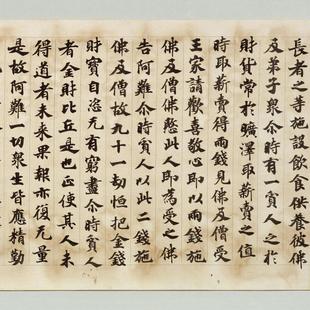 長者之等施設飲食供養彼佛
及弟子衆尒時有一貧人之於
財貨常於曠澤取薪賣之值
時取薪賣得兩錢見佛及僧受
王家請歡喜敬心即以兩錢施
佛及僧佛愍此人即為受之佛
告阿難尒時貧人以此二錢施
佛及僧故九十一劫恒把金錢
財寶自恣无有窮盡尒時貧人
者金財比丘是也正使其人未
得道者未來果報亦復无量
是故阿難一切衆生皆應精勤